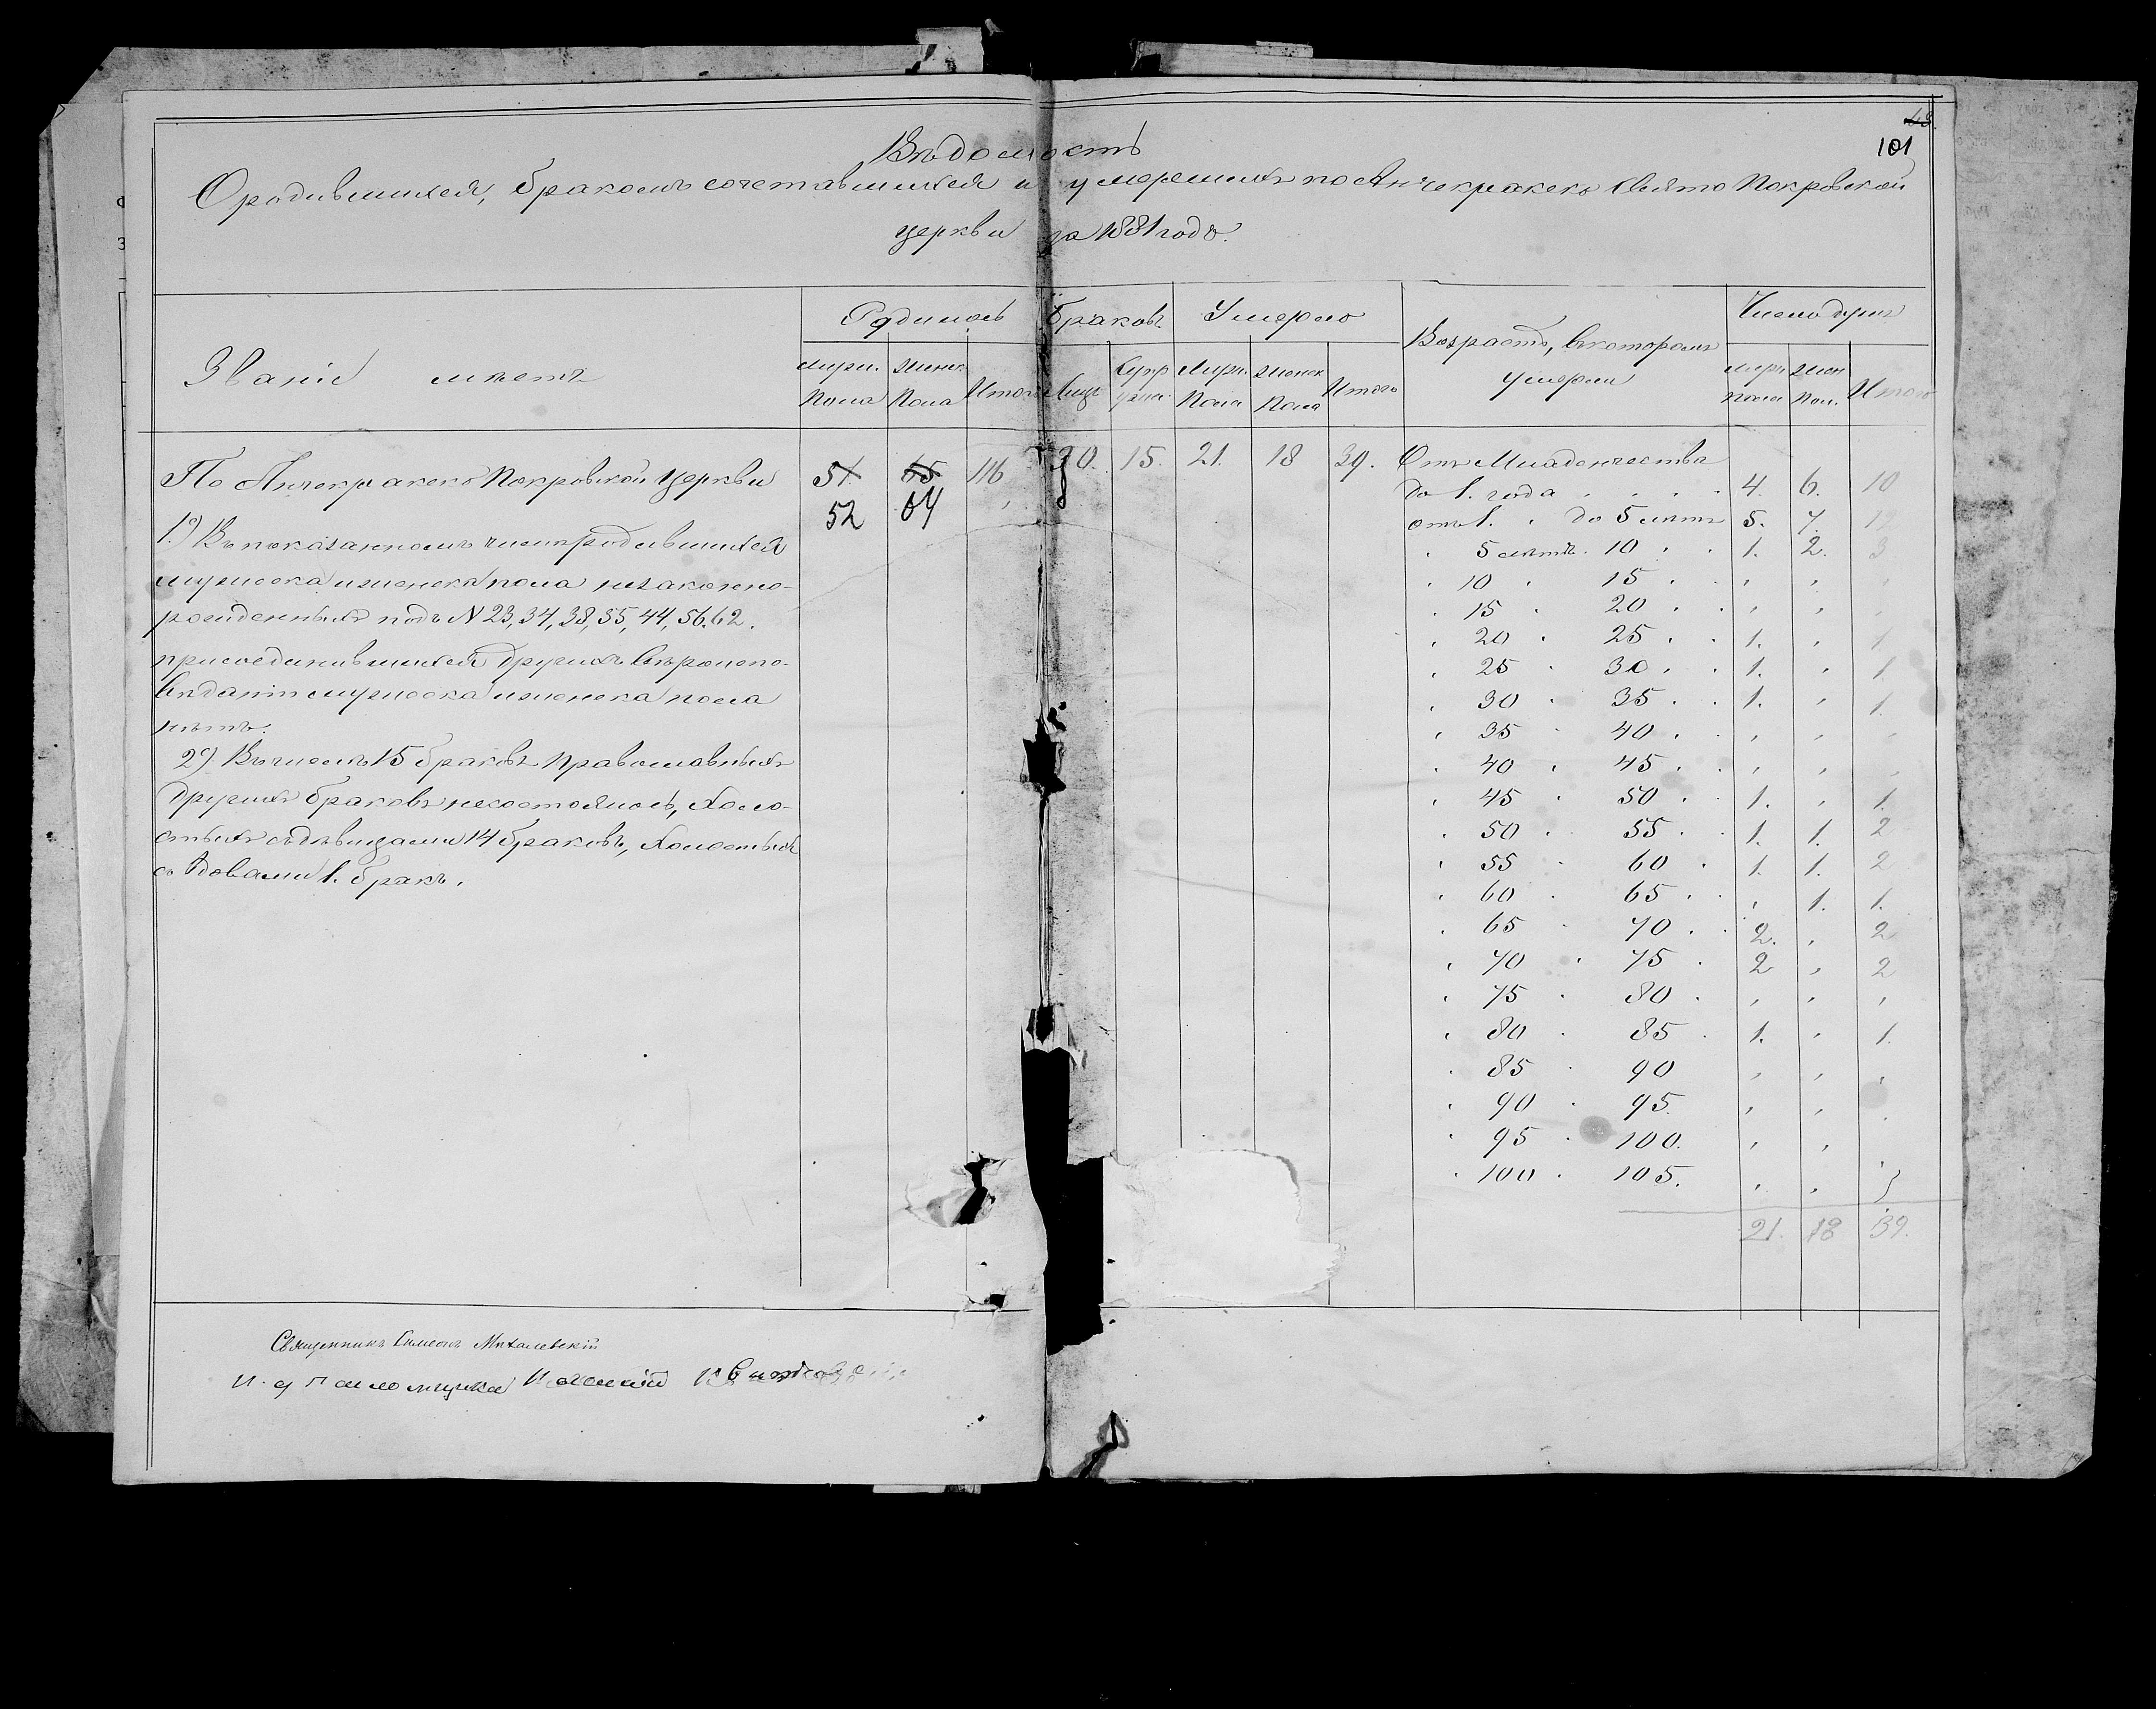 48.
101
Вѣдомость
О родившихся, бракомъ сочетавшихся и умершихъ по Анчекракско Свято Покровской
церкви за 1881 годъ.
Званіе мѣстъ
Родилось
Браковъ
Умерло
Возрастъ, въ которомъ
умерли
Число душъ
мужс. Пола
женск. Пола
Итого
Лицъ
Супр
Мужс. Пола
женск Пола
Итого
мужс пола
жен пол.
Итого
По Анчекракско Покровской Церкви 51. 65 116 30. 15. 21. 18 39.
52 64
1.) Въ показанномъ числѣ родившихся
мужеска и женска пола незаконно-
рожденныхъ подъ N 23, 34, 38, 35, 44, 56, 62.
присоединившихся другихъ вѣроиспо-
вѣданій мужеска и женска пола
нѣтъ.
2) Въ числѣ 15 браковъ православныхъ
другихъ браковъ не состоялось, Холо-
стыхъ съ дѣвицами 14 браковъ, Холостыхъ
съ вдовами 1. бракъ.
Отъ Младенчества
до 1. года . . . . 4. 6. 10
отъ 1. . до 5 лѣтъ 5. 7. 12
" 5 лѣтъ. 10 . . 1. 2. 3
" 10 . 15 . . " " "
" 15 . 20 . . " " "
" 20 . 25 . . 1. " 1
" 25 . 30 . . 1. " 1
" 30 . 35 . . 1. " 1.
" 35 . 40 . . " " "
" 40 . 45 . . " " "
" 45 . 50 . . 1. " 1.
" 50 . 55 . . 1. 1. 2
" 55 . 60 . 1. 1. 2
" 60 . 65 . . " 1. 1.
" 65 . 70 . . 2. " 2
" 70 . 75 . 2 " 2
" 75 . 80 . " " "
" 80 . 85 . 1. " 1.
" 85 . 90 " " "
" 90 . 95. " " "
" 95 . 100. " " "
" 100 . 105. " " "
21. 18 39.
Священникъ Симеонъ Михалевскій
И. д Псаломщика